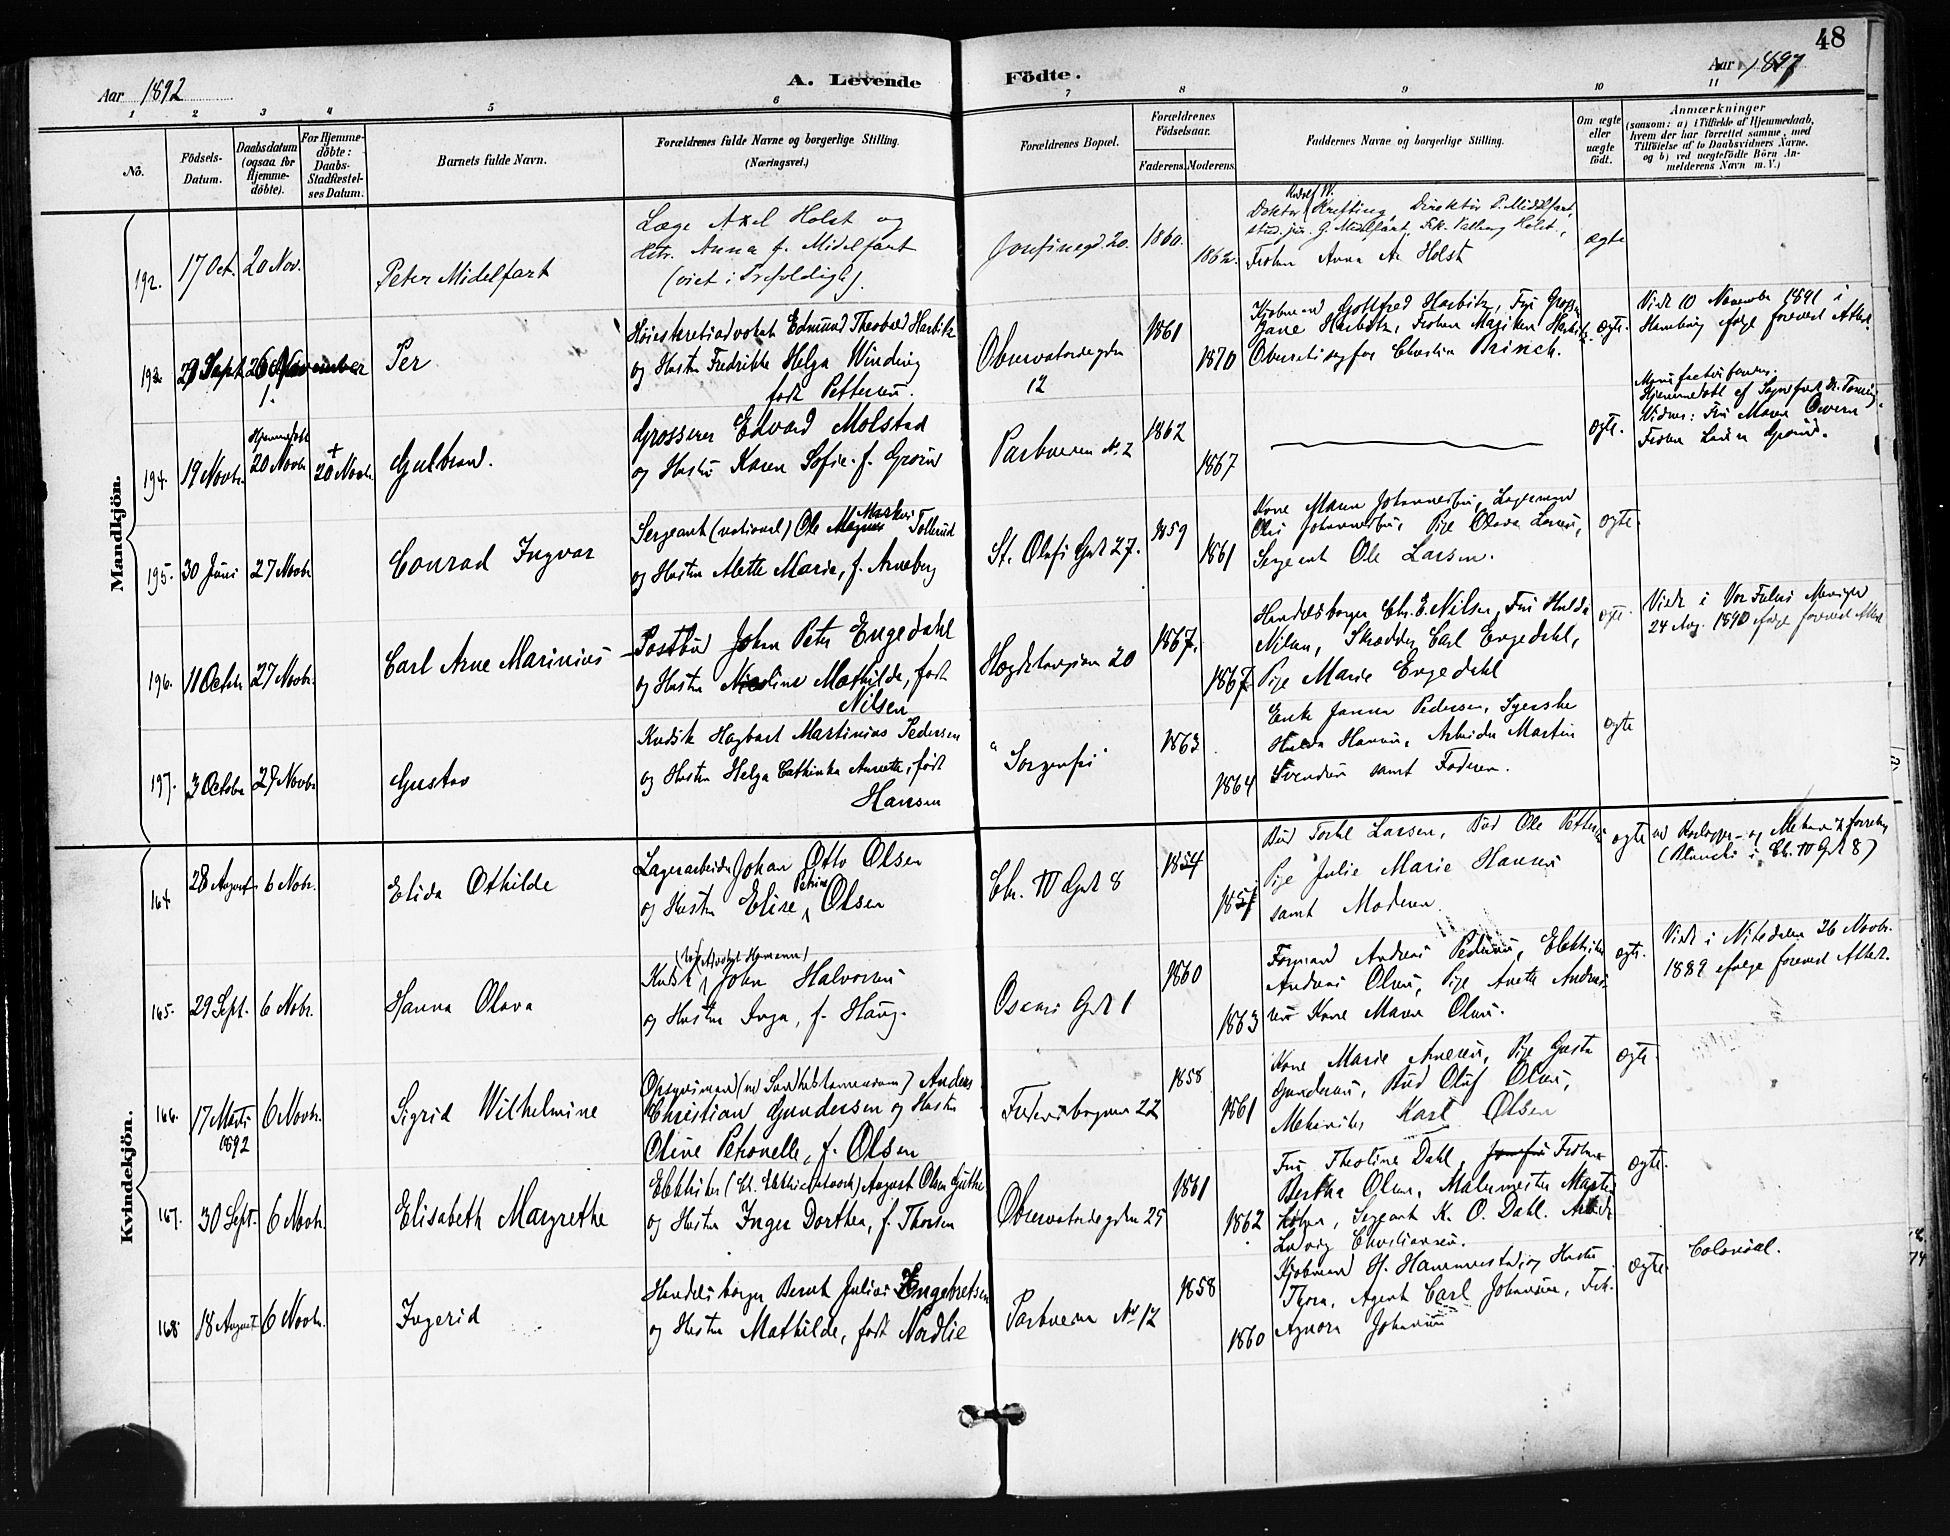 48
Aar 1892
A. Levende Födte.
Aar 1897
1 2 3 4 5 6 7 8 9 10 11
No.
Födsels-Datum.
Daabsdatum (ogsaa for Hjemme-döbte).
For Hjemme-döbte: Daabs-Stadfæstel-ses Datum.
Barnets fulde Navn.
Forældrenes fulde Navne og borgerlige Stilling.
(Næringsvei.)
Forældrenes Bopæl.
Forældrenes Födselsaar.
Faderens. Moderens.
Faddernes Navne og borgerlige Stilling.
Om ægte eller uægte födt.
Anmærkninger
(saasom: a) i Tilfælde af Hjemmedaab, hvem der har forrettet samme, med Tilföielse af to Daabsvidners Navne, og b) ved uægtefödte Börn Anmelderens Navn m. V.)
Mandkjön.
192. 17 Oct. 20 Nov.
Peter Midelfart
Læge Axel Holst og
Htr. Anna f. Midelfart
(viet i Trefoldigh).
Josefinegd. 20. 1860.
Doktor Krefting, Direktör P. Midelfart,
stud. jur. G. Midelfart, Frk. Valborg Holst,
Froken Anna A. Holst
ægte
193 29 Sept. 26 November
Per
Høiesteretsadvokat Edmund Theobald Harbitz
og Hustru Fredrikke Helga Winding
født Pettersen.
Observatoriegden
12
1861
1870
Kjøbmand Gottfred Harbitz, Fru
Jane Harbitz, Frøken Magiken Harbitz
Overretssagfør Christian Brinch.
ægte.
Viede 10 November 1891 i
Hamburg ifølge forevist Attest.
194. 19 Novbr. Hjemmedøbt 20 Novbr. + 20 Novbr.
Gulbrand.
Grosserer Edvard Molstad
og Hustru Karen Sofie f. Grøno
Parkveien No. 2
1862
1867
ægte.
Hjemmedøbt af
Vidner: Fru Maren
195. 30 Juni 27 Novbr
Conrad Ingvar
Sergeant (national) Ole Magnus Tollerud
og Hustru Alette Marie, f. Arneberg
St. Olafs Gade 27.
1859
1861
Kone Maren Johannesen, Lagermand
Olus Johannesen, Pige Olava Larsen,
Sergeant Ole Larsen.
ægte.
196. 11 Octbr. 27 Novbr.
Carl Arne Marinius
Postbud Johan Peter Engedahl
og Hustru Nicoline Mathilde, født
Nilsen
Hægdehaugsveien 20
1867.
1867
Handelsborger Chr. E. Nilsen, Fru Hulda
Nilsen, Skrædder Carl Engedahl,
Pige Marie Engedahl
ægte.
Viede i Vor Frelsers Menighed
24 Aug. 1890 ifølge forevist Attest
197. 3 Octobr 27 Novbr
Gustav
Kudsk Hagbart Martinius Pedersen
og Hustru Helga Cathinka Annette, født
Hansen
"Sorgenfri
1863
1864
Enke Janna Pedersen, Syerske
Hulda Hansen, Arbeider Martin
Svendsen samt Faderen.
ægte
Kvindekjön.
164 28 August 6 Nobr.
Elida Othilde
Lagerarbeider Johan Otto Olsen
og Hustru Elise Petrine Olsen
Chr. IV Gade 8
1854
Bud Torkel Larsen, Bud Ole Pettersen
Pige Julie Marie Hansen
samt Moderen
ægte
165. 29 Sept. 6 Nobr.
Hanna Olava
Kudsk John Halvorsen
og Hustru Inga, f. Haug.
Oscars Gade 1
1860
1863
Formand Andreas Pedersen, Elektriker
Andreas Olsen, Pige Anette Andreas-
sen Kone Maren Olsen.
ægte.
Viede i Nitedalen 26 Novbr.
1882 ifølge forevist Attest.
166. 17 Marts 1892 6 Novbr.
Sigrid Wilhelmine
Opsynsmand Anders
Christian Gundersen og Hustru
Oline Petronelle, f. Olsen
Frederiksbogveien 22
1858
1861
Kone Marie Arnesen, Pige Gusta
Gundersen, Bud Oluf Olsen,
Mekaniker Karl Olsen
ægte.
167. 30 Sept. 6 Novbr.
Elisabeth Margrethe
Elektriker August Olsen Güthe
og Hustru Inger Dorthea, f. Thorsen
Observatoriegden 25
1861
1862
Fru Theoline Dahl, Frøken
Bertha Olsen, Malermester Martin
Sergeant K. O. Dahl. Arbeider
Ludvig Christiansen.
ægte.
168 18 August 6 Novbr.
Ingerid
Handelsborger Bernt Julius Engebretsen
og Hustru Mathilde, født Nordlie
Parkveien No 12
1858
1860
Kjøbmand H. Hammerstad, og Hustru
Thora, Agent Carl Johansen, Frk.
Agnora Johansen
ægte.
Colonial.